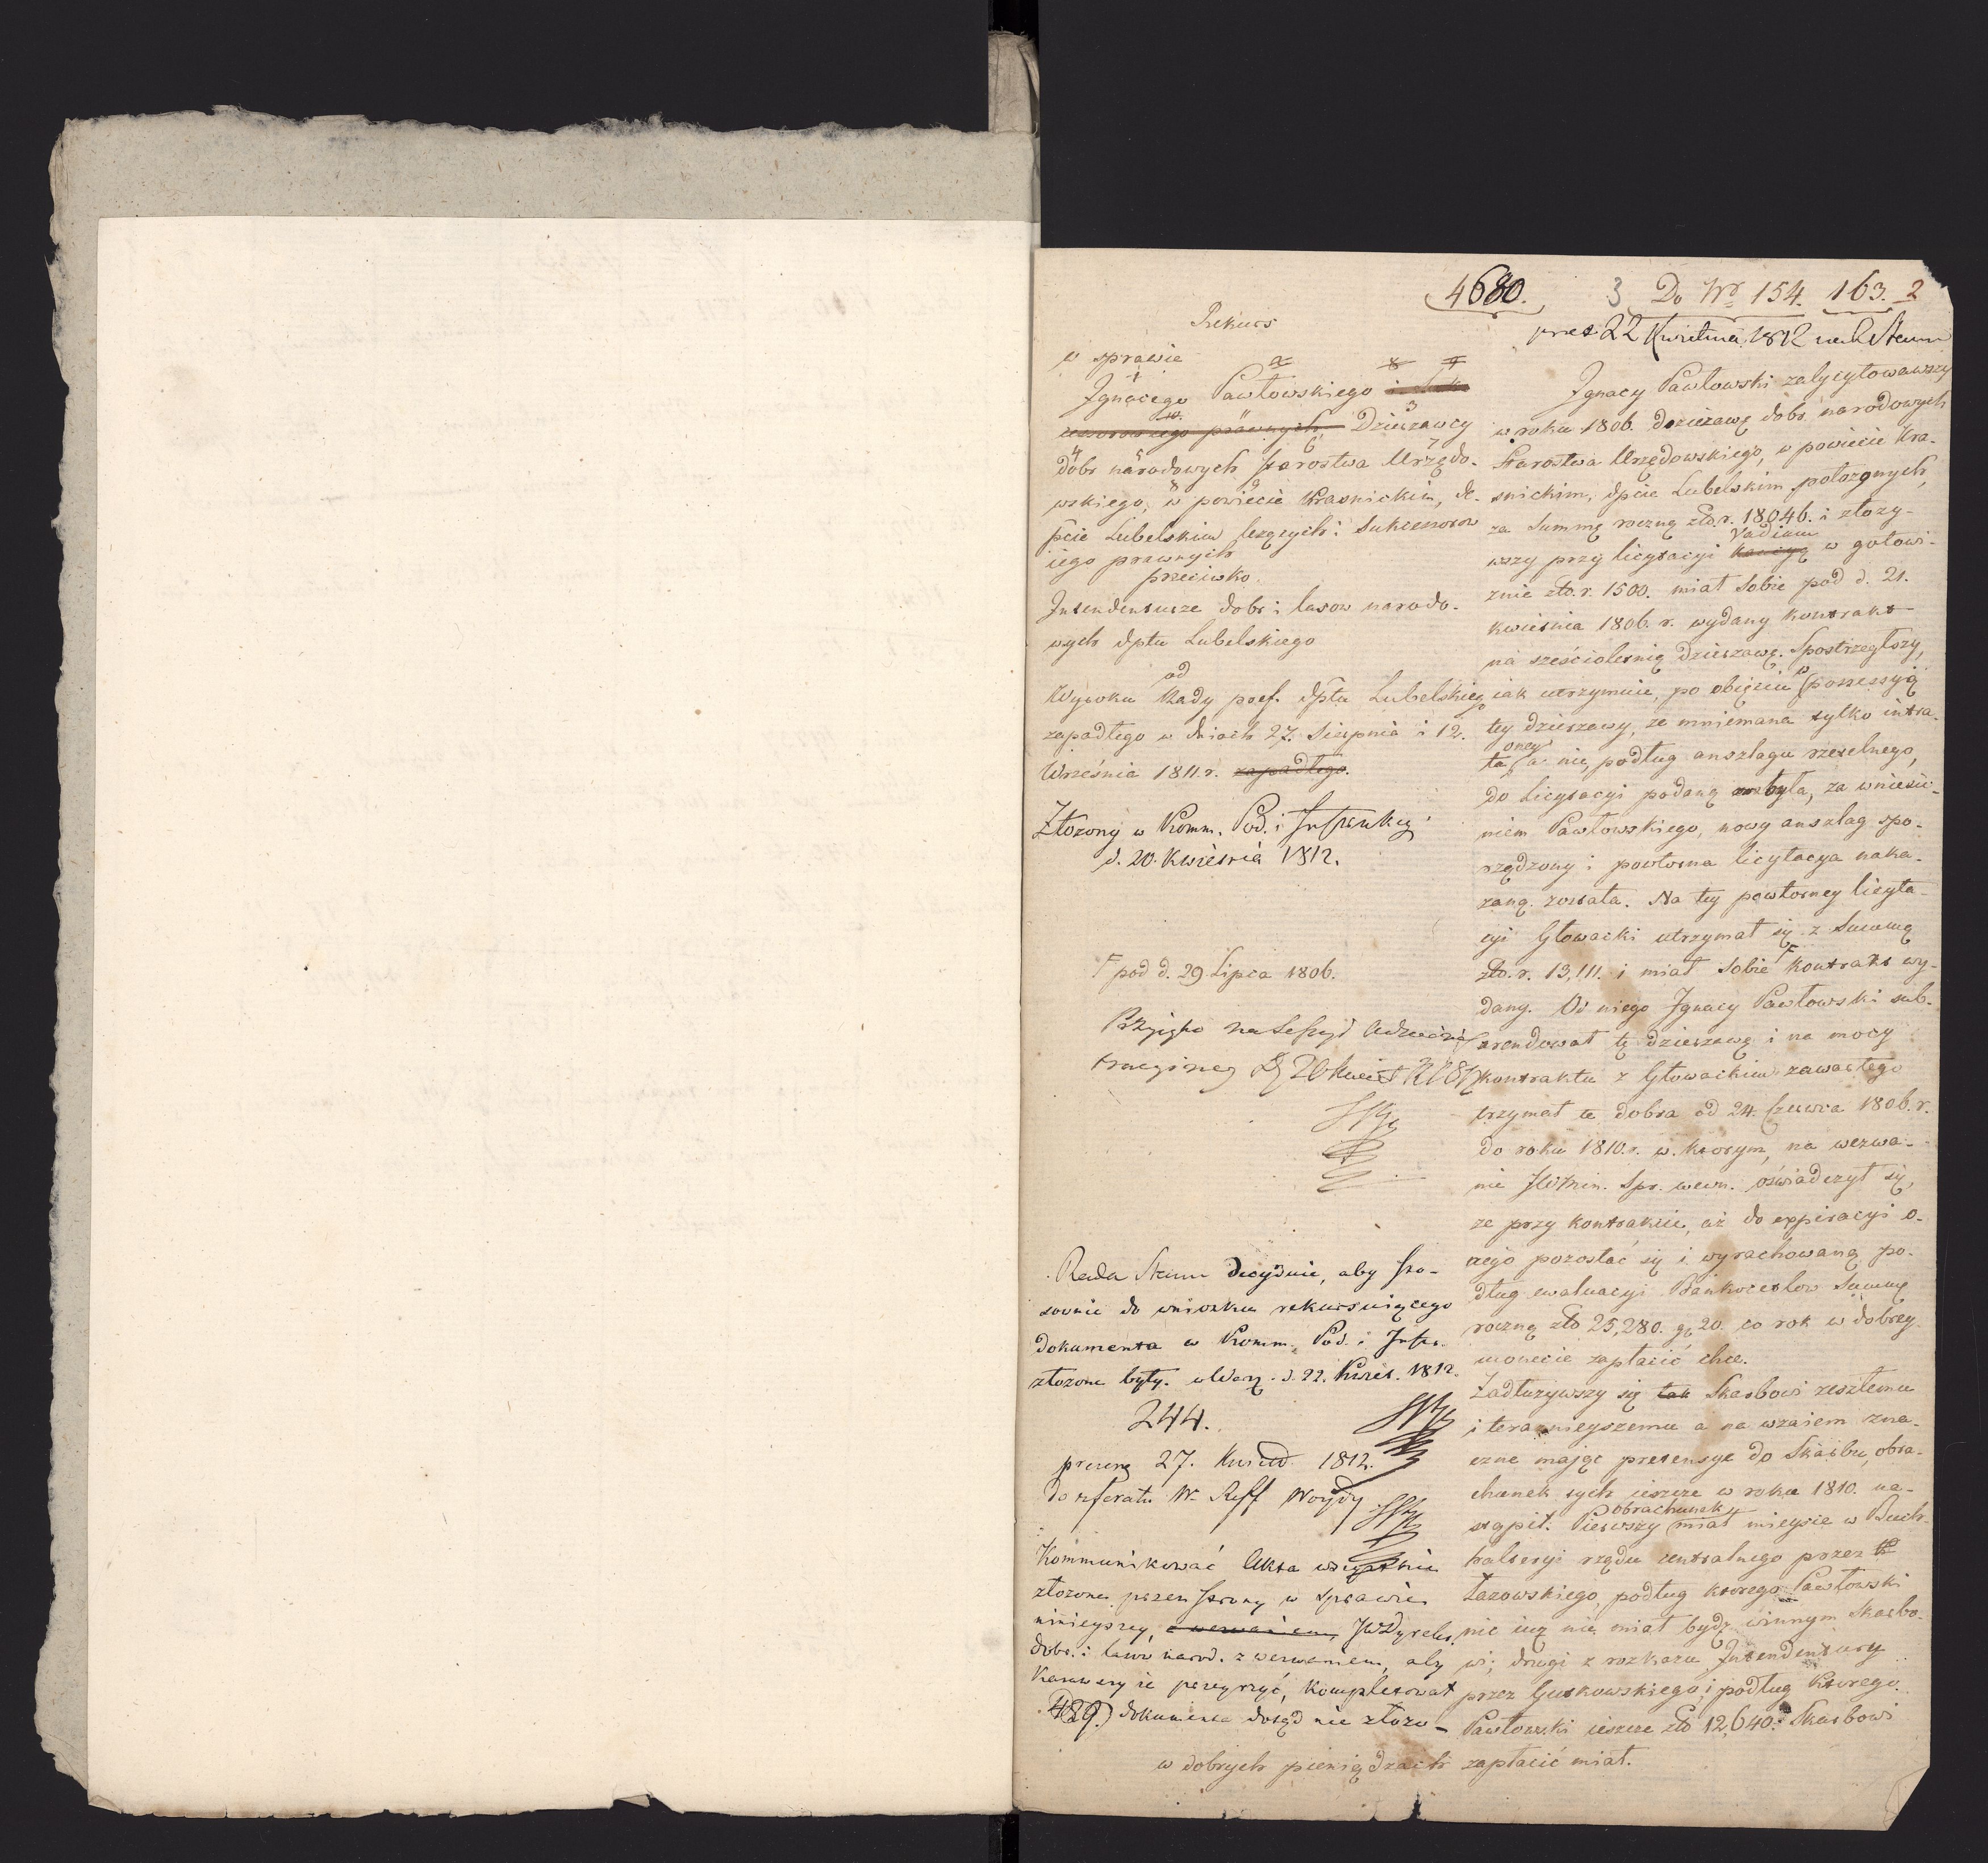 4680.
3 Do Nro 154. 163. 2
prez 22 Kwietnia 1812 
Rekurs
w sprawie
Ignacego Pawłowskiego
Dzierzawcy
dobr narodowych Starostwa Urzędo-
wskiego, w powiecie Krasnickim, de-
pcie Lubelskim leżących i Sukcessorow
iego prawnych
przeciwko
Intendenturze dobr i lasow narodo-
wych dptu Lubelskiego
od
Wyroku Rady pref. dptu Lubelskieg
zapadłego w dniach 27. Sierpnia i 12.
Września 1811. r. zapadłego.
Złożony w Komm. Pod. i Instrukcy
d. 20. Kwietnia 1812.
F pod d. 29. Lipca 1806.
Przyięto na Sessyi Adminis
tracyiney D 20 Kwiet
Rada Stanu decyduie, aby sto-
sownie do wniosku rekursuiącego
dokumenta w Komm. Pod. i Instr.
złożone były. w Warsz. d. 22. Kwiet. 1812.
244.
27. Kwiet. 1812.
do referatu W. Reff Woydy
Kommunikować Akta wszystkie
złożone przez strony w sprawie
ninieyszey, z wezwaniem, JW Dyrekt.
dobr. i lasow narod. z wezwaniem, aby
kazawszy ie przeyrzyć, kompletował
429.) dokumenta dotąd nie złożo-
Ignacy Pawłowski zalicytowawszy
w roku 1806. dzierżawę dobr narodowych
Starostwa Urzędowskiego, w powiecie Kra-
snickim, dpcie Lubelskim położonych,
za Summę roczną zło. r. 18046. i złoży-
Vadium
wszy przy licytacyi kaucyą w gotowi-
znie zło. r. 1500. miał sobie pod d. 21.
kwietnia 1806. r. wydany kontrakt
na sześcioletnią dzierzawę. Spostrzegłszy,
w
iak utrzymuie, po obięciu possessyą
tey dzierzawy, ze mniemana tylko intra-
oney
ta, a nie podług anszlagu rzetelnego,
do licytacyi podaną była, za wniesie-
niem Pawłowskiego, nowy anszlag spo-
rządzony i powtorna licytacya naka-
zaną została. Na tey powtorney licyta-
cyi Głowacki utrzymał się z Summą
F
zło. r. 13,111. i miał sobie kontrakt wy-
dany. Od niego Ignacy Pawłowski sub-
arendował tę dzierzawę i na mocy
kontraktu z Głowackim zawartego
trzymał te dobra od 24. Czerwca 1806. r.
do roku 1810. r. w ktorym, na wezwa-
nie JW Min. Spr. wewn. oświadczył się,
ze przy kontrakcie, aż do expiracyi o-
nego pozostać się i wyrachowaną po-
dług ewaluacyi Bankocetlow Summę
roczną zło 25,280. gr 20. co rok w dobrey
monecie zapłacić chce.
Zadłużywszy się tak Skarbowi zeszłemu
i teraznieyszemu a na wzaiem zna-
czne maiąc pretensye do Skarbu, obra-
chunek tych ieszcze w roku 1810. na-
obrachunek
stąpił. Pierwszy miał mieysce w Buch-
halteryi rządu centralnego przez
Łazowskiego, podług ktorego Pawłowski
nic iuż nie miał bydź winnym Skarbo-
wi; drugi z rozkazu Intendentury
przez Gutkowskiego, i podług ktorego
Pawłowski ieszcze zło 12,640. Skarbowi
w dobrych pieniądzach zapłacić miał.